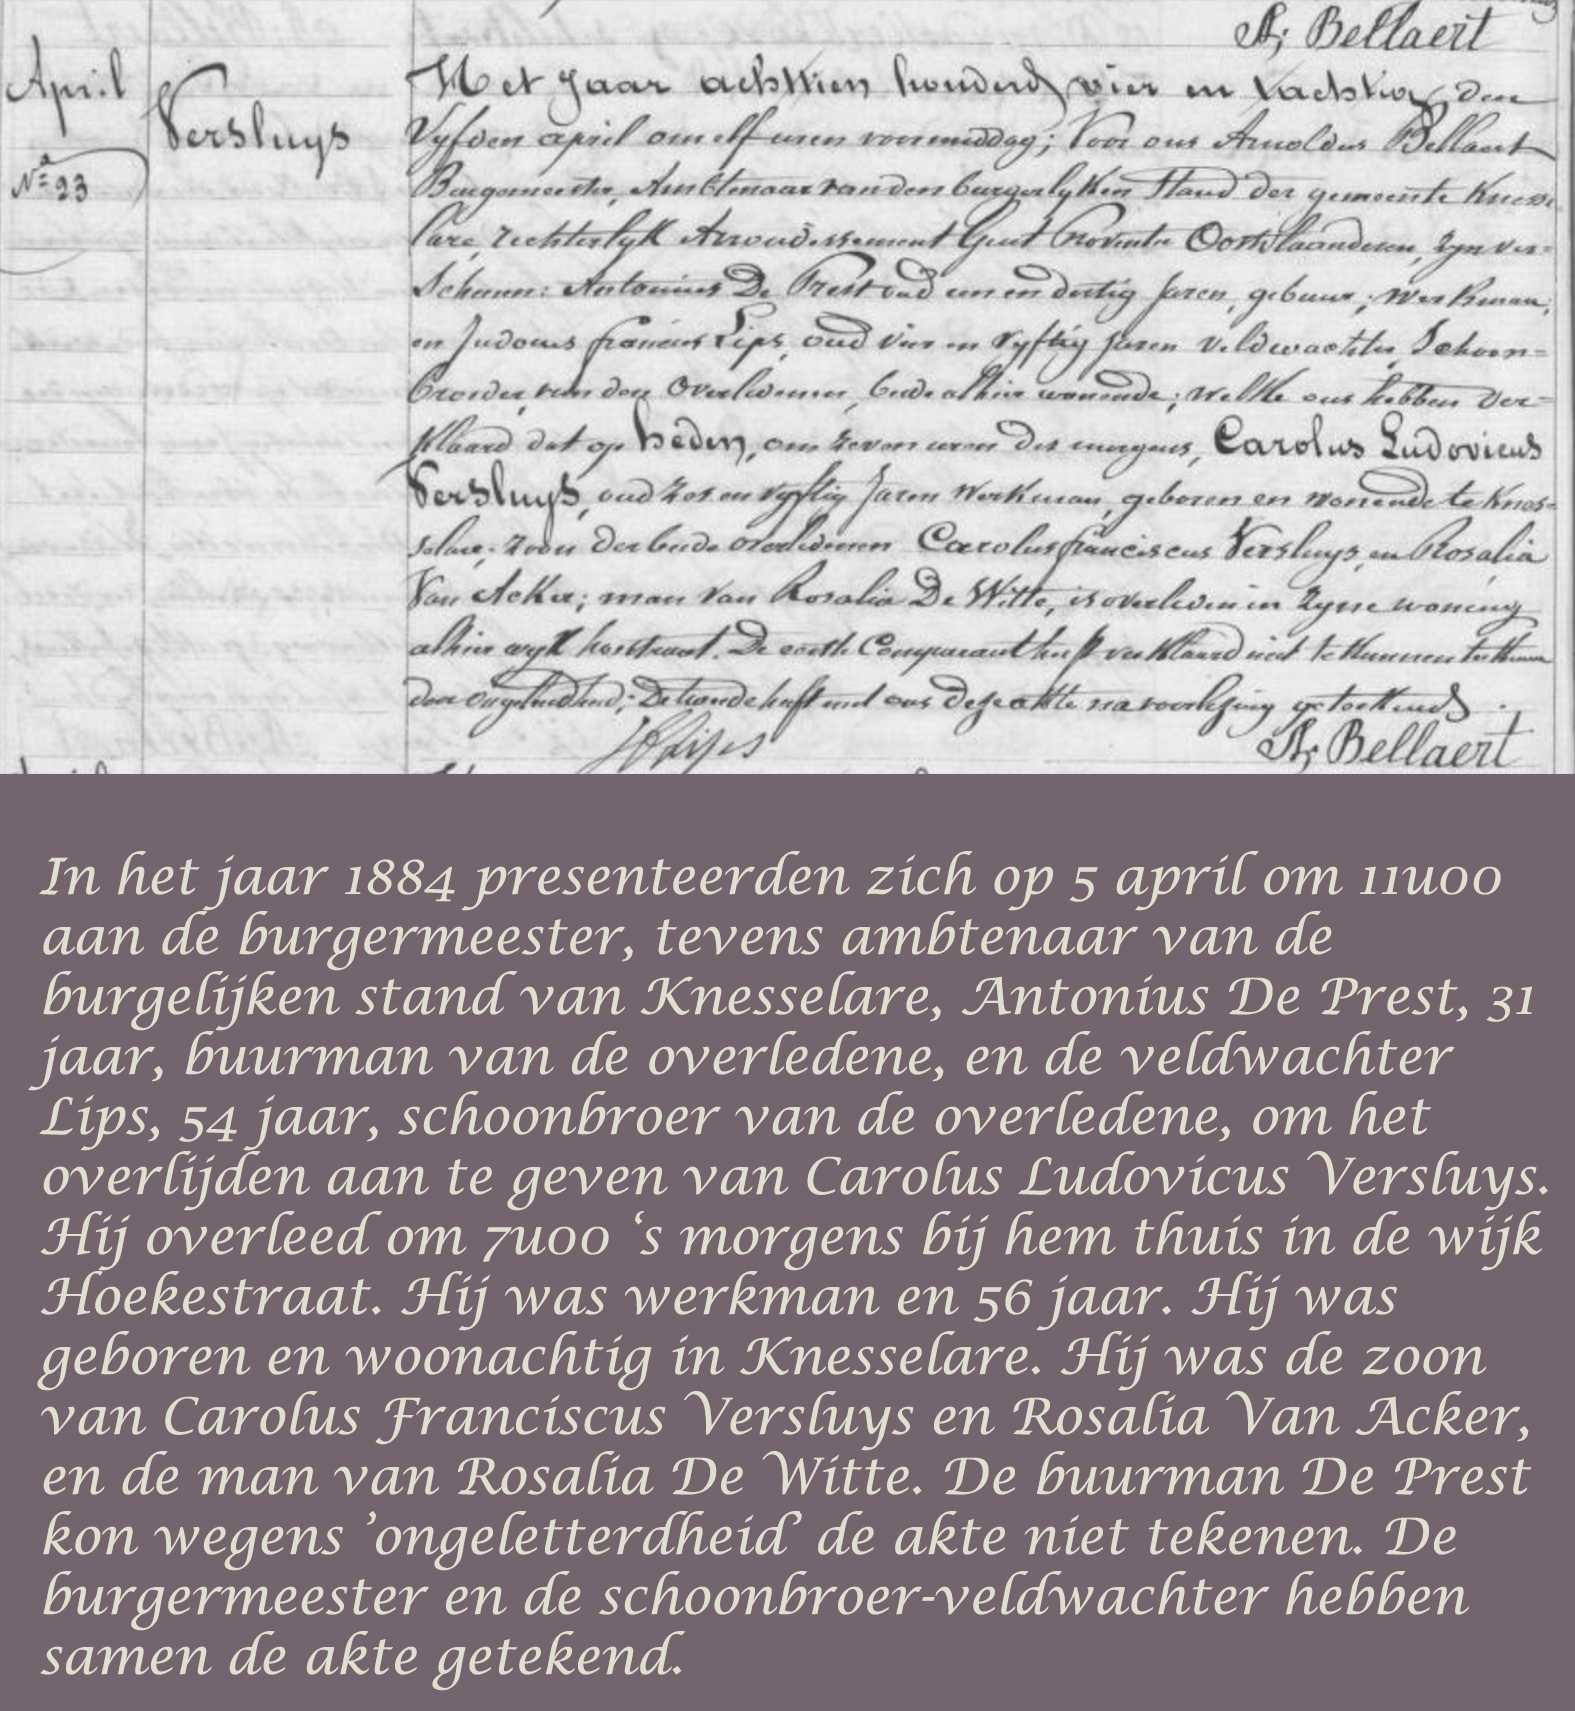 A; Bellaert
April
Versluys
Nª 23
Het Jaar achttien honderd vier en tachtig, den
Vyfden april om elf uren voormiddag; Voor ons Arnoldus Bellaert
Burgemeester, Ambtenaar van den burgerlyken Stand der gemeente Knesse
lare, rechterlyk Arrondissement Gent Provintie Oostvlaanderen, zyn ver=
Schenen: Antonius De Prest oud een en dertig Jaren, gebuur, werkman,
en Judocus francies Lips, oud vier en vyftig Jaren veldwachter, Schoon=
broeder van den Overledenen, beide alhier wonende; welke ons hebben ver=
klaard dat op heden, om zeven uren des morgens, Carolus Ludovicus
Versluys, oud zes en vyftig Jaren werkman, geboren en wonende te Knes=
selare; zoon der beide overledenen Carolus franciscus Versluys, en Rosalia
Van Acker; man van Rosalia De Witte, is overleden in zyne woning
alhier wyk. De eerste Comparant heeft verklaard niet te kunnen teekenen
door ongeletterdheid; De tweede heeft met ons deze akte na voorlezing geteekend.
Lips
A; Bellaert
In het jaar 1884 presenteerden zich op 5 april om 11u00
aan de burgermeester, tevens ambtenaar van de
burgelijken stand van Knesselare, Antonius De Prest, 31
jaar, buurman van de overledene, en de veldwachter
Lips, 54 jaar, schoonbroer van de overledene, om het
overlijden aan te geven van Carolus Ludovicus Versluys.
Hij overleed om 7u00 ‘s morgens bij hem thuis in de wijk
Hoekestraat. Hij was werkman en 56 jaar. Hij was
geboren en woonachtig in Knesselare. Hij was de zoon
van Carolus Franciscus Versluys en Rosalia Van Acker,
en de man van Rosalia De Witte. De buurman De Prest
kon wegens ’ongeletterdheid’ de akte niet tekenen. De
burgermeester en de schoonbroer-veldwachter hebben
samen de akte getekend.